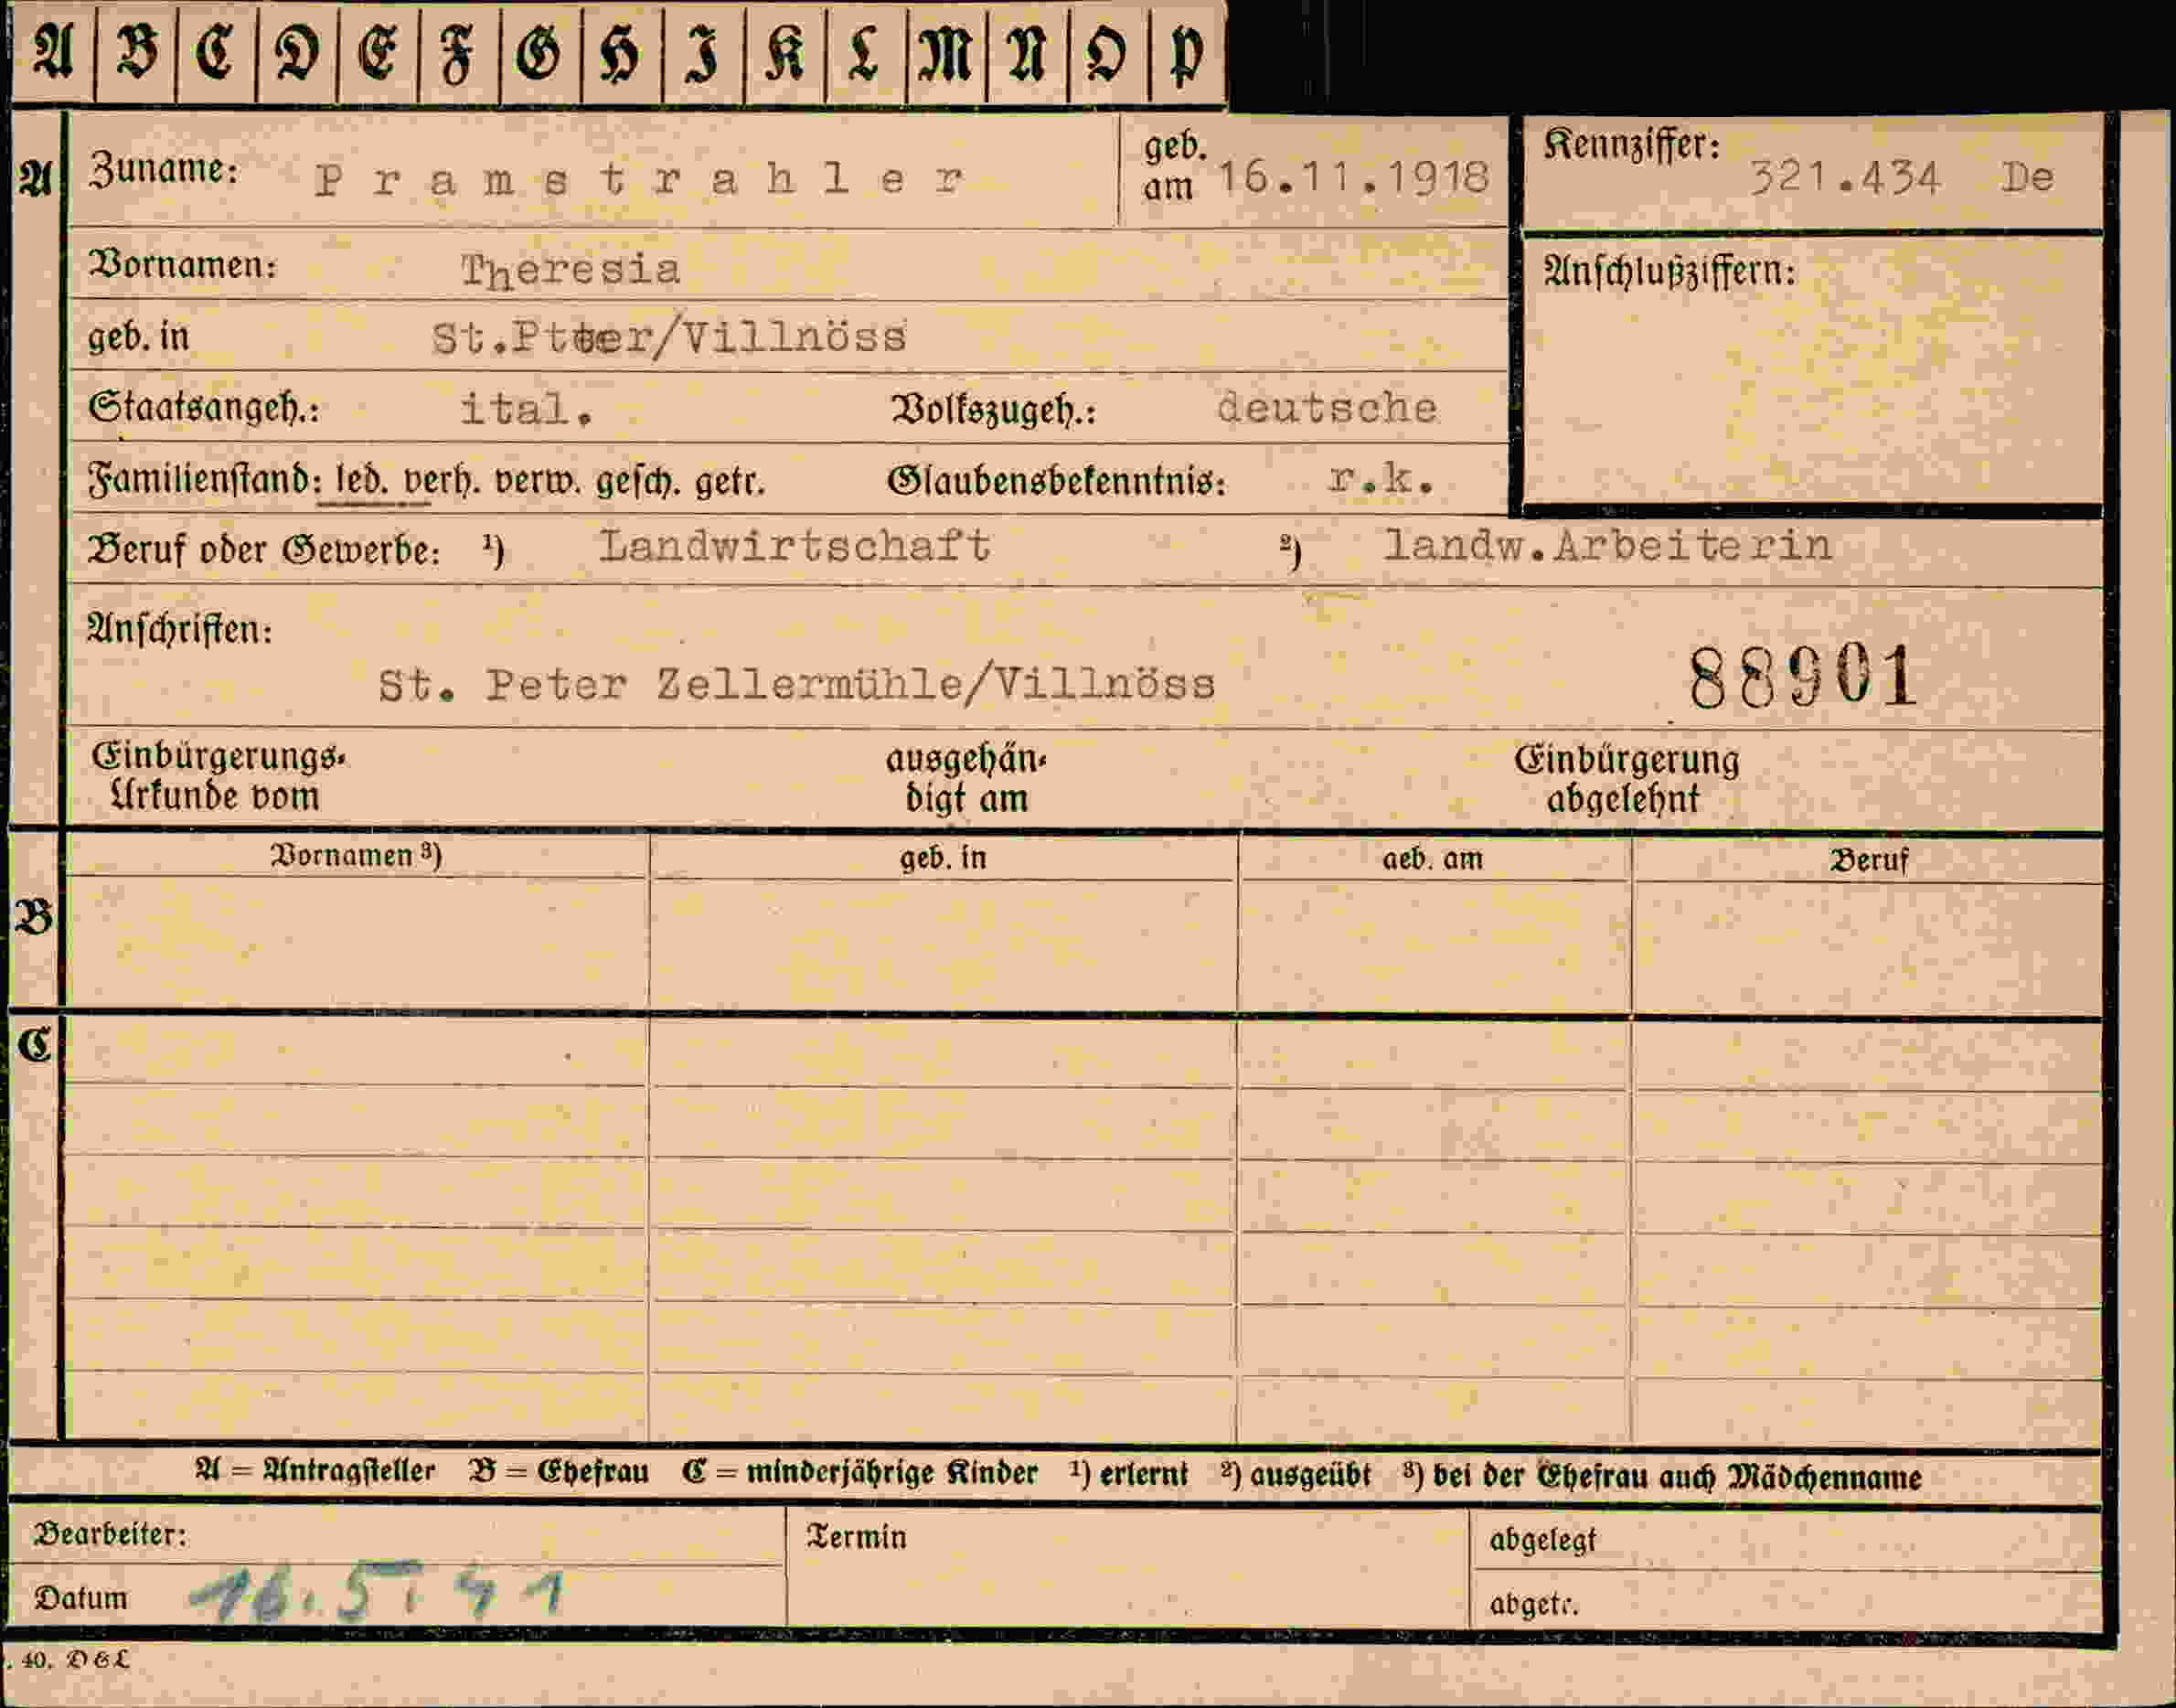 A B C D E F G H I K L M N O P
A Zuname: Pramstrahler geb. am 16.11.1918 Kennziffer: 321.434 De
Vornamen: Theresia Anschlußziffern:
geb. in St.Ptter/Villnöss
Staatsangeh.: ital. Volkszugeh.: deutsche
Familienstand: led. verh. verw. gesch. getr. Glaubensbekenntnis: r.k.
Beruf oder Gewerbe: ¹) Landwirtschaft ²) landw.Arbeiterin
Anschriften:
St. Peter Zellermühle/Villnöss 88901
Einbürgerungs- ausgehän- Einbürgerung
Urkunde vom digt am abgelehnt
Vornamen ³) geb. in geb. am Beruf
B
C
A = Antragsteller B = Ehefrau C = minderjährige Kinder ¹) erlernt ²) ausgeübt ³) bei der Ehefrau auch Mädchenname
Bearbeiter: Termin abgelegt
Datum 16.5.41 abgetr.
. 40. D&L